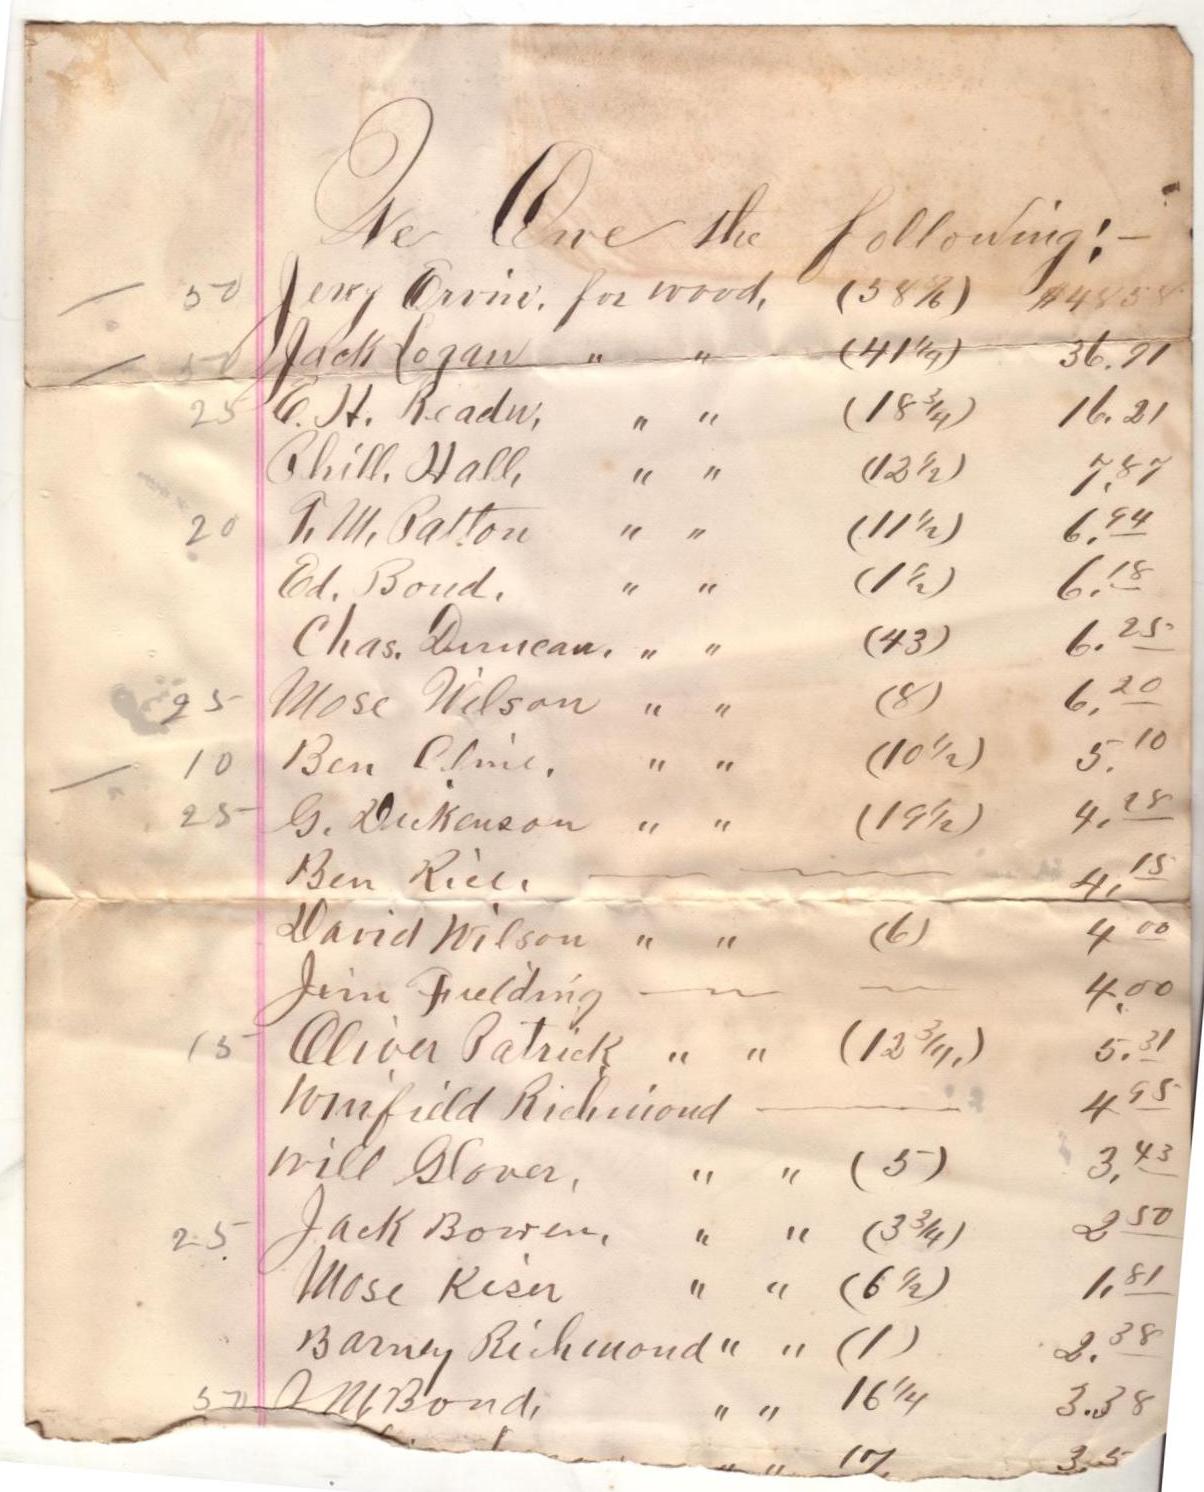 We Owe the following:—
— 50 Jerry Ervin, for wood, (38 1/6) $48.58
— 50 Jack Logan " " (41 1/9) 36.91
25 E. H. Readn, " " (18 3/4) 16.21
Phill. Hall, " " (12 1/2) 7.87
20 T. M. Patton " " (11 1/2) 6.94
Ed. Bond, " " (1 1/2) 6.18
Chas. Duncan, " " (43) 6.25
25 Mose Wilson " " (8) 6.20
— 10 Ben Cline, " " (10 1/2) 5.10
25 G. Dickenson " " (19 1/2) 4.28
Ben Rice, — — 4.15
David Wilson " " (6) 4 00
Jim Fielding — — 4.00
15 Oliver Patrick " " (12 3/4,) 5.31
Winfield Richmond — 4 95
Will Glover, " " (5) 3.43
25 Jack Bowen, " " (3 3/4) 2 50
Mose Keser " " (6 1/2) 1.81
Barney Richmond " " (1) 2.38
50 J M Bond, " " 16 1/4 3.38
" " 17, 3.5